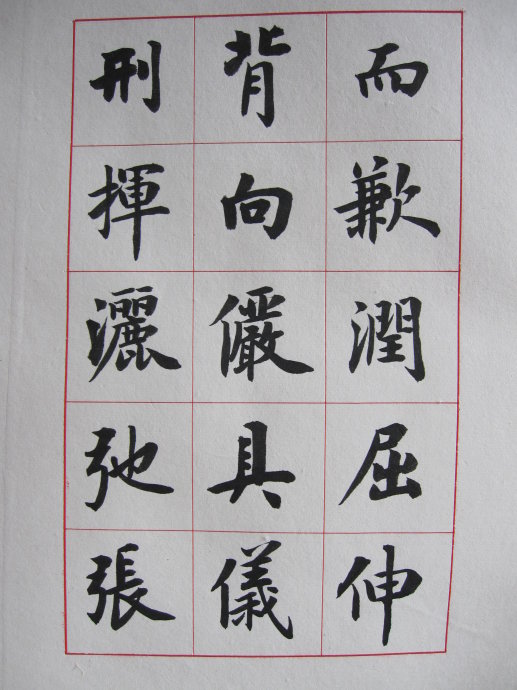 而歉潤屈伸
背向儼具儀
刑揮灑弛張